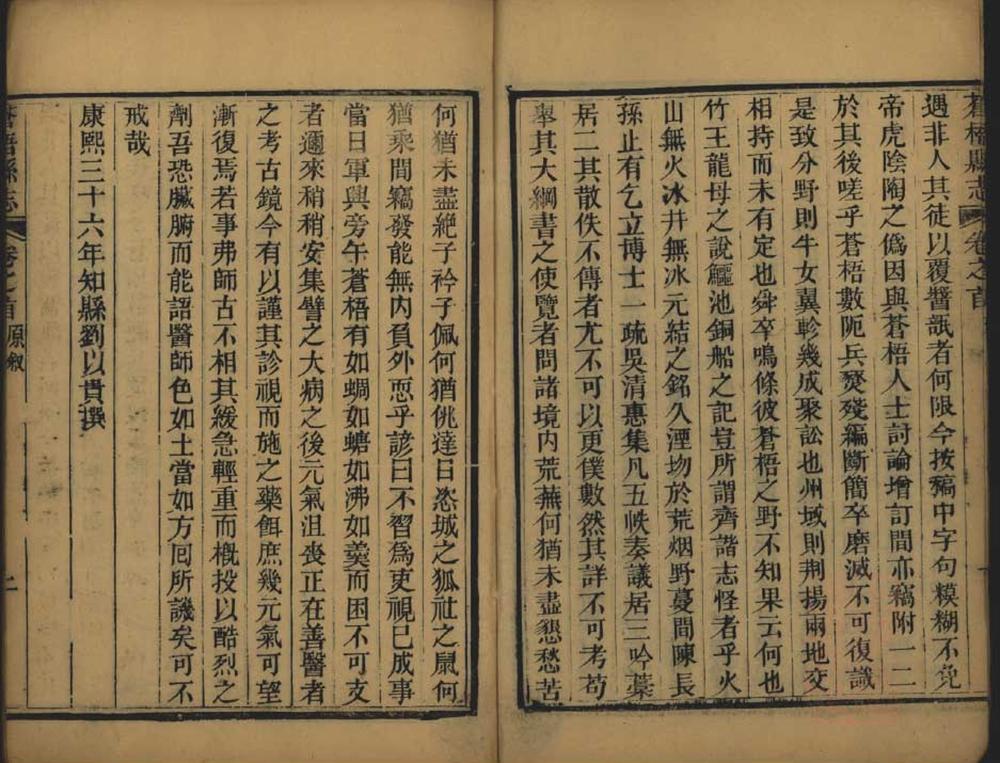 蒼梧縣志 卷之首
遇非人其徒以覆醬瓿者何限今按稿中字句糢糊不免
帝虎陰陶之僞因與蒼梧人士討論增訂間亦竊附一二
於其後嗟乎蒼梧數阨兵燹殘編斷簡卒磨滅不可復識
是致分野則牛女翼軫幾成聚訟也州域則荆揚兩地交
相持而未有定也舜卒鳴條彼蒼梧之野不知果云何也
竹王龍母之說鱷池銅船之記豈所謂齊諧志怪者乎火
山無火冰井無冰元結之銘久湮物於荒烟野蔓間陳長
孫止有乞立博士一疏吳清惠集凡五帙奏議居三吟藁
居二其散佚不傳者尤不可以更僕數然其詳不可考苟
舉其大綱書之使覽者問諸境内荒蕪何猶未盡懇愁苦
何猶未盡絕子衿子佩何猶佻達日恣城之狐社之鼠何
猶乘間竊發能無内負外恧乎諺曰不習爲吏視已成事
當日軍興旁午蒼梧有如蜩如螗如沸如羹而困不可支
者邇來稍稍安集譬之大病之後元氣沮喪正在善醫者
之考古鏡今有以謹其診視而施之藥餌庶幾元氣可望
漸復焉若事弗師古不相其緩急輕重而槪投以酷烈之
劑吾恐臟腑而能語醫師色如土當如方囘所譏矣可不
戒哉
康熙三十六年知縣劉以貴撰
蒼梧縣志 卷之首 原敘